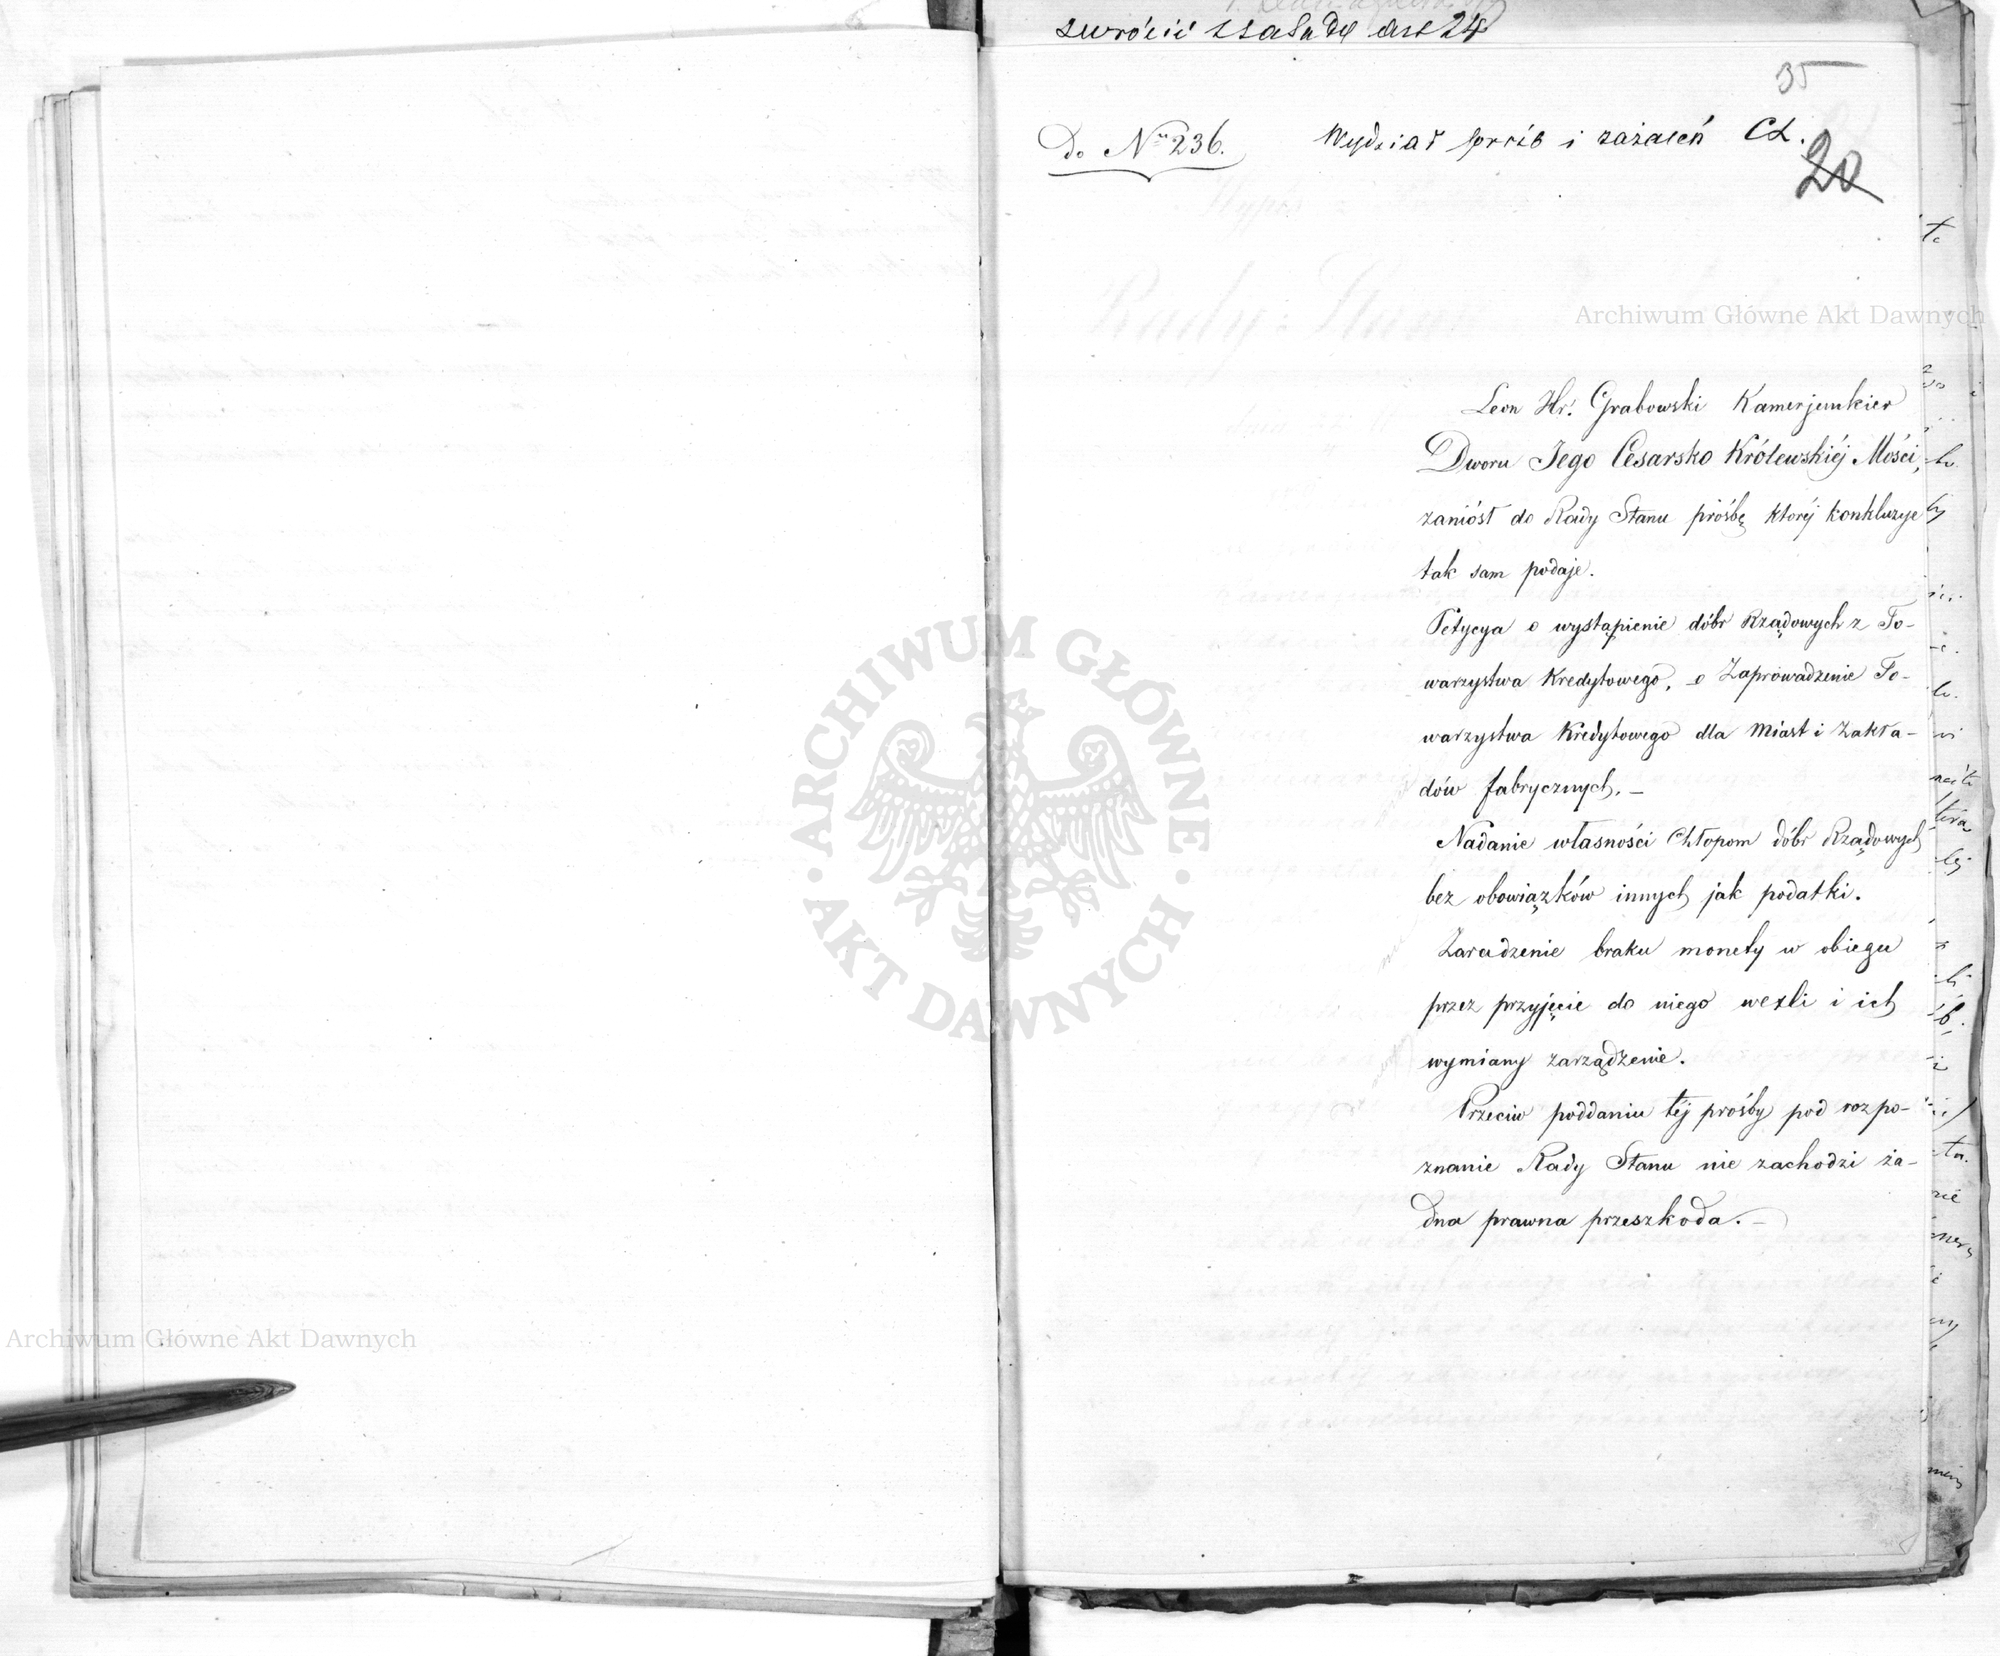 zwrócić zasadę art 24
35
Do Nru 236.
Wydział próśb i zażaleń CL.
20
Archiwum Główne Akt Dawnych
Leon Hr. Grabowski Kamerjunkier
Dworu Jego Cesarsko Królewskiéj Mości,
zaniósł do Rady Stanu prośbę któréj konkluzye
tak sam podaje.
Petycya o wystąpienie dóbr Rządowych z To-
warzystwa Kredytowego, o Zaprowadzenie To-
warzystwa Kredytowego dla Miast i Zakła-
dów fabrycznych. –
Nadanie własności Chłopom dóbr Rządowych
bez obowiązków innych jak podatki.
Zaradzenie braku monety w obiegu
przez przyjęcie do niego wexli i ich
wymiany zarządzenie.
Przeciw poddaniu téj prośby pod rozpo-
znanie Rady Stanu nie zachodzi ża-
dna prawna przeszkoda. –
ARCHIWUM GŁÓWNE
AKT DAWNYCH
Archiwum Główne Akt Dawnych